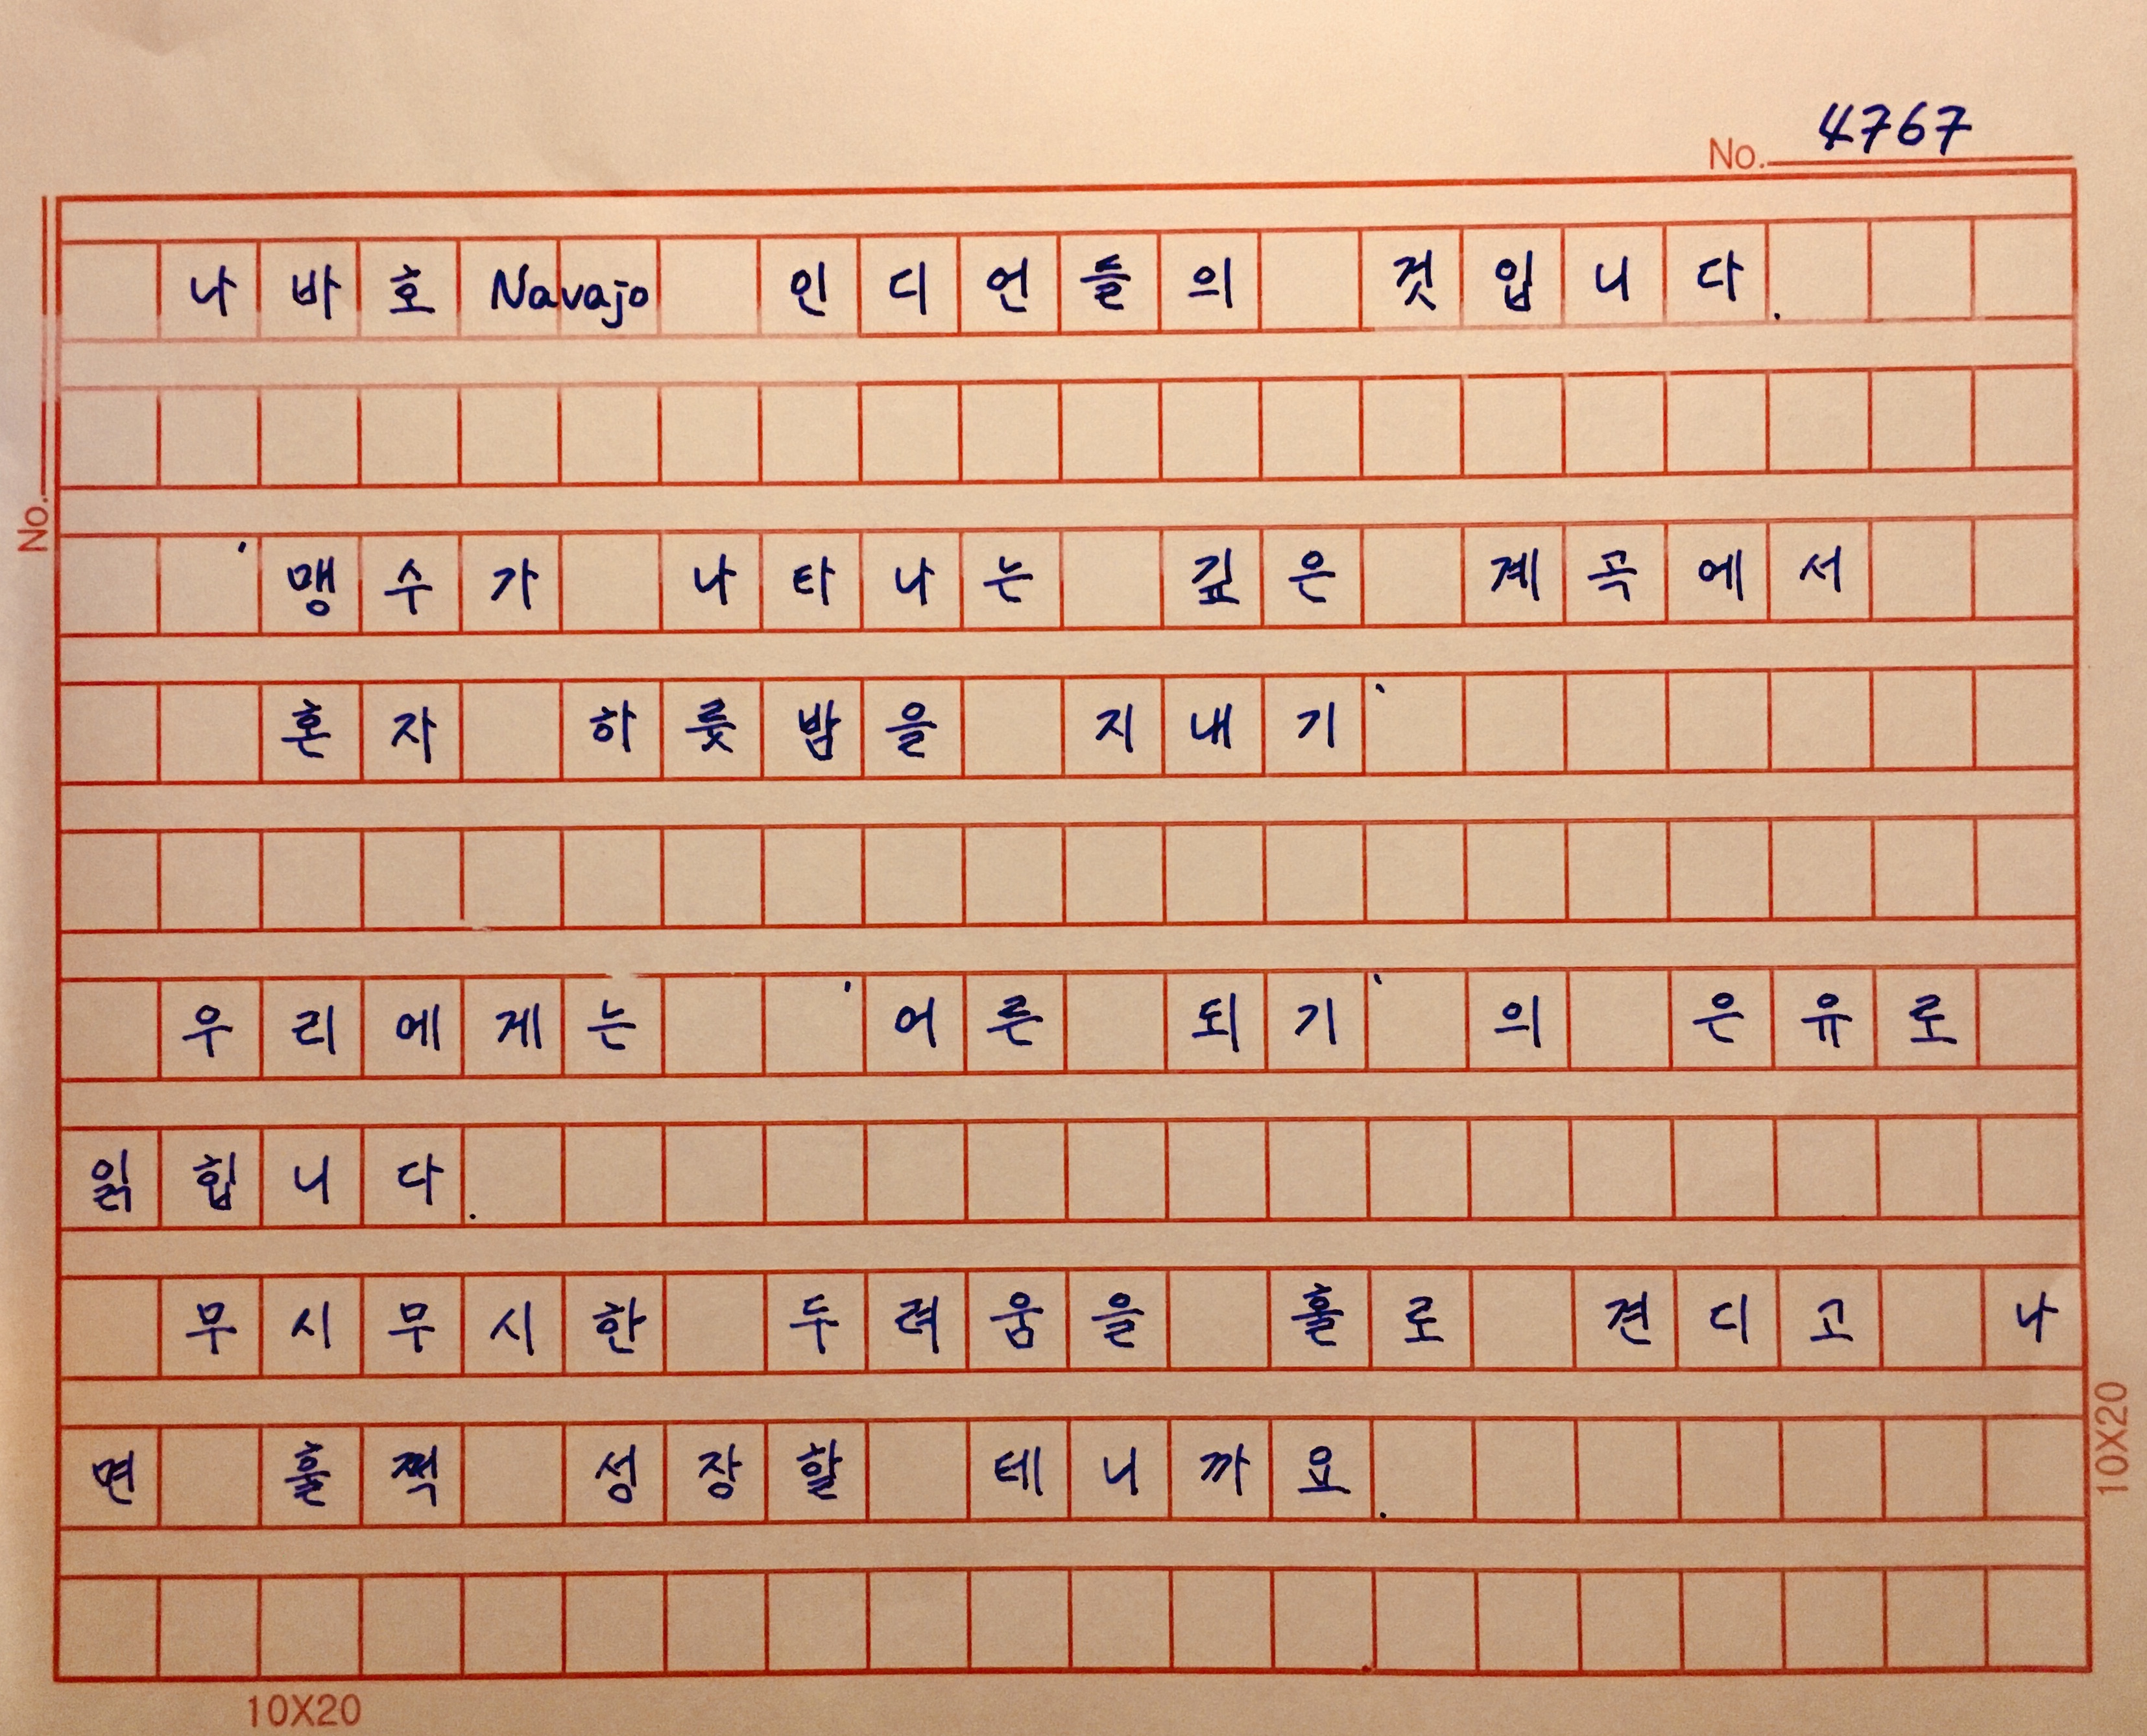 No. 4767
나바호Navajo 인디언들의 것입니다.
No.
'맹수가 나타나는 깊은 계곡에서
혼자 하룻밤을 지내기'
우리에게는 '어른 되기'의 은유로
읽힙니다.
무시무시한 두려움을 홀로 견디고 나
면 훌쩍 성장할 테니까요.
10X20
10X20